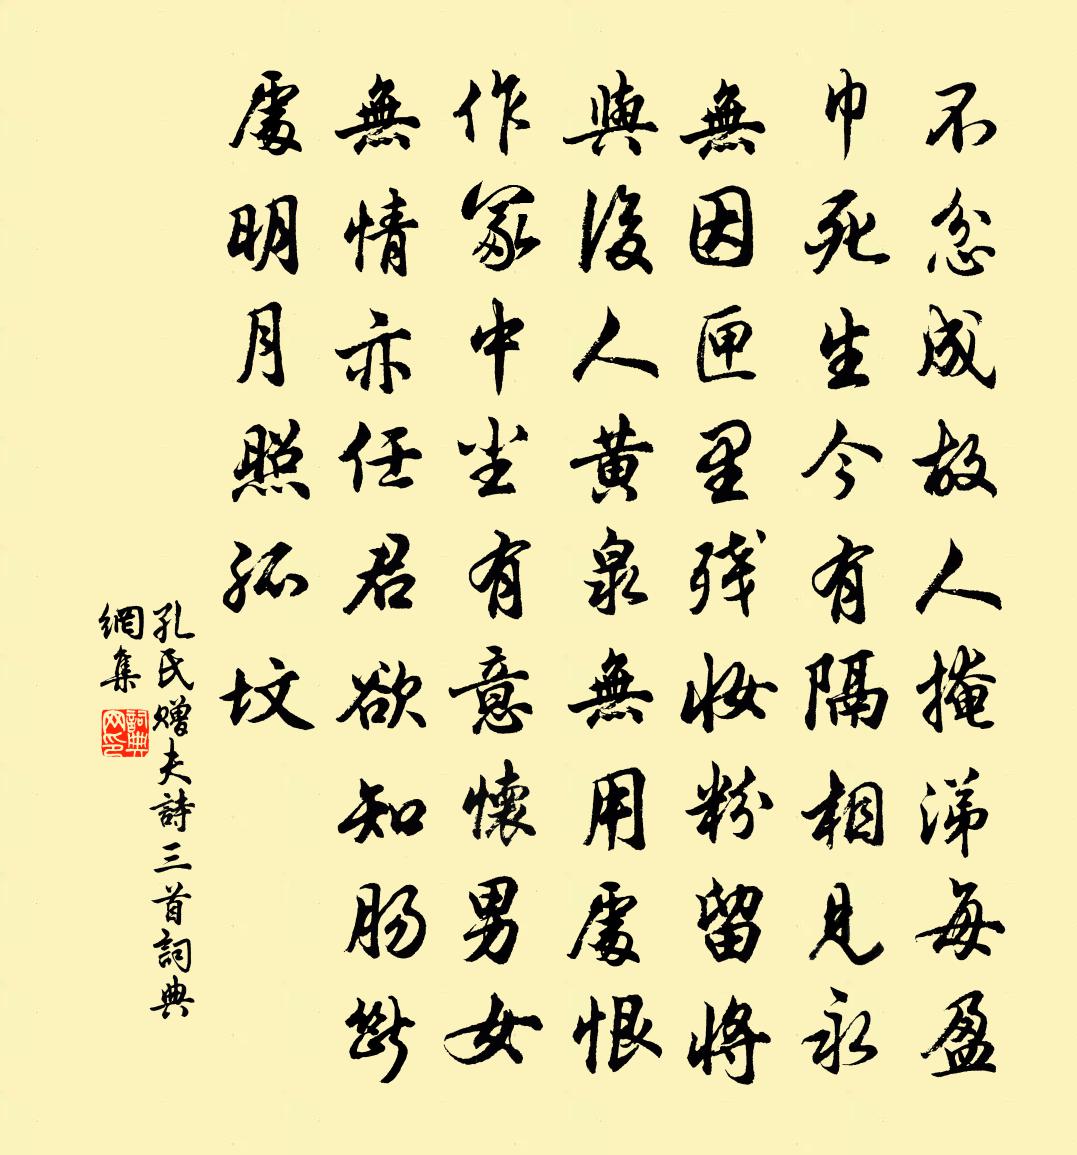 不忿成故人掩涕每盈
巾死生今有隔相見永
無因匣里残妝粉留將
與後人黄泉無用處恨
作冢中尘有意懷男女
無情亦任君欲知肠斷
處明月照孤坟
孔氏赠夫詩三首詞典
網集
詞典网印